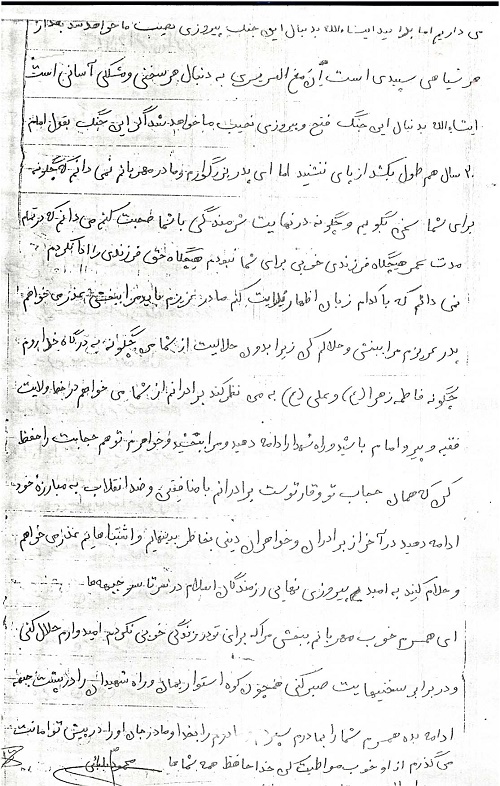 می داریم اما بدانید انشاءالله بدنبال این جنگ پیروزی نصیب ما خواهد شد بعد از
هر سیاهی سپیدی است إن مع العسر یسری به دنبال هر سختی و مشکلی آسانی است
انشاءالله بدنبال این جنگ فتح و پیروزی نصیب ما خواهد شد اگر این جنگ بقول امام
۲۰ سال هم طول بکشد از پای ننشینید اما ای پدر بزرگوارم و مادر مهربانم نمی دانم که چگونه
برای شما سخن بگویم و چگونه در نهایت شرمندگی با شما صحبت کنم می دانم که در تمام
مدت عمر هیچگاه فرزندی خوبی برای شما نبودم هیچگاه حق فرزندی را ادا نکردم
نمی دانم که با کدام زبان اظهار کنم مادر عزیزم باید مرا ببخشی عذر می خواهم
پدر عزیزم مرا ببخش و حلالم کن زیرا بدون حلالیت از شما من چگونه به درگاه خدا بروم
چگونه فاطمه زهرا (س) و علی (ع) به من نظر کند برادرانم از شما می خواهم در خط ولایت
فقیه و پیرو امام باشید و راه شهدا را ادامه دهید و مرا ببخشید و خواهرم تو هم حجابت را حفظ
کن که همان حجاب تو وقار توست برادرانم با منافقین و ضد انقلاب به مبارزه خود
ادامه دهید در آخر از برادران و خواهران دینی بخاطر بدیهایم و اشتباهایم عذر می خواهم
و حلالم کنید به امید پیروزی نهایی رزمندگان اسلام در سرتاسر جبهه ها
ای همسرم خوب مهربانم ببخش مرا که برای تو در زندگی خوبی نکردم امیدوارم حلال کنی
و در برابر سختیهایت صبر کنی همچون کوه استوار بمان و راه شهیدان را در پشت جبهه
ادامه بده همسرم شما را بمادرم را بخدا و مادرجان او را در پیش تو امانت
می گذارم از او خوب مواظبت کن خداحافظ همه شماها محمود